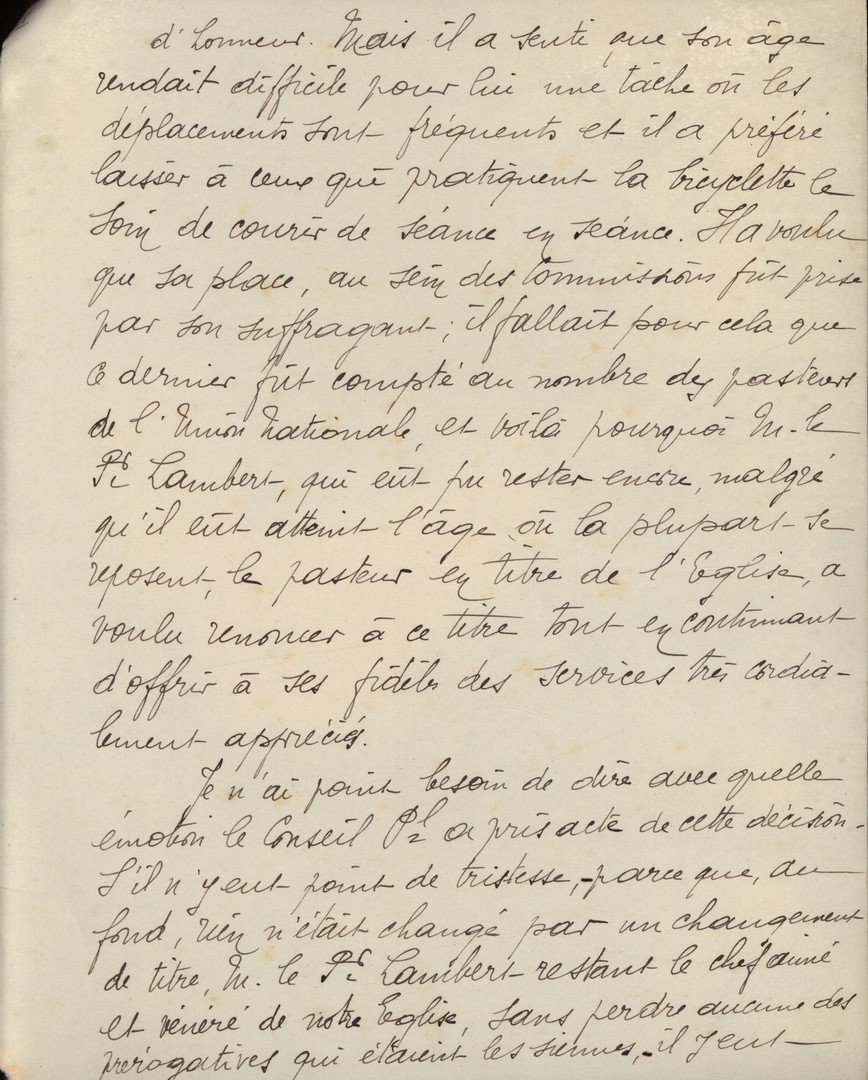 d'honneur. Mais il a senti que son âge
rendait difficile pour lui une tâche où les
déplacements sont fréquents et il a préféré
laisser à ceux qui pratiquent la bicyclette le
soin de courir de séance en séance. Il a voulu
que sa place, au sein des Commissions fût prise
par son suffragant ; il fallait pour cela que
ce dernier fût compté au nombre des pasteurs
de l'Union Nationale, et voilà pourquoi M. le
Pr Lambert, qui eût pu rester encore, malgré
qu'il eût atteint l'âge où la plupart se
reposent, le pasteur en titre de l'Eglise, a
voulu renoncer à ce titre tout en continuant
d'offrir à ses fidèles des services très cordia-
lement appréciés.
Je n'ai point besoin de dire avec quelle
émotion le Conseil Pl a pris acte de cette décision.
S'il n'y eut point de tristesse, - parce que, au
fond, rien n'était changé par un changement
de titre, M. le Pr Lambert restant le chef aimé
et vénéré de notre Eglise, sans perdre aucune des
prérogatives qui étaient les siennes, - il y eut